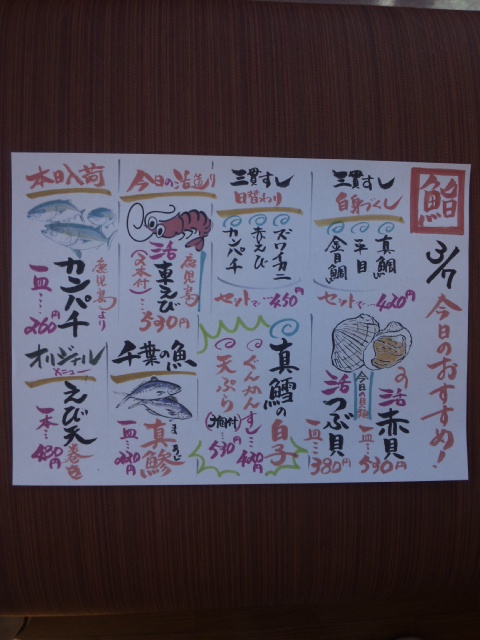 鮨
3/7 今日のおすすめ!
三貫すし
白身づくし
真鯛
平目
金目鯛
セットで…420円
三貫すし
日替わり
ズワイガニ
赤えび
カンパチ
セットで…450円
今日の活造り
鹿児島
活車えび
530円
本日入荷
鹿児島より
カンパチ
一皿…260円
今日の目玉
活赤貝
一皿…530円
活つぶ貝
一皿…380円
真鱈の白子
ぐんかんすし
天ぷら
530円
千葉の魚
真鯵
まあじ
一皿
オリジナル
メニュー
えび天巻き
一本…480円